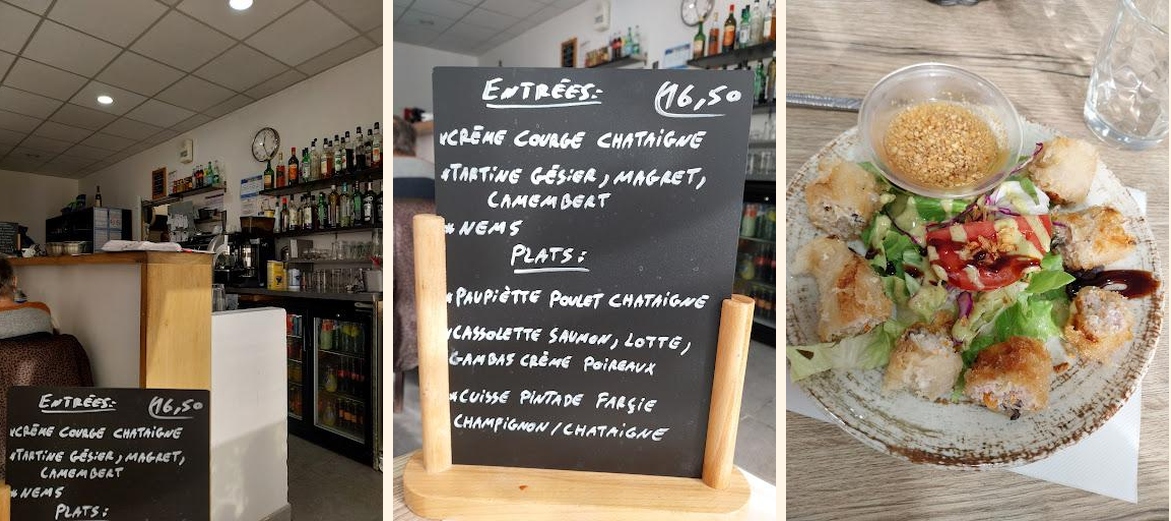 ENTRÉES: 16,50
CRÈME COURGE CHATAIGNE
TARTINE GÉSIER, MAGRET,
CAMEMBERT
NEMS
PLATS:
ENTRÉES: 16,50
*CRÈME COURGE CHATAIGNE
*TARTINE GÉSIER, MAGRET,
CAMEMBERT
*NEMS
PLATS:
*PAUPIÈTTE POULET CHATAIGNE
*CASSOLETTE SAUMON, LOTTE,
GAMBAS CRÈME POIREAUX
*CUISSE PINTADE FARÇIE
CHAMPIGNON/CHATAIGNE